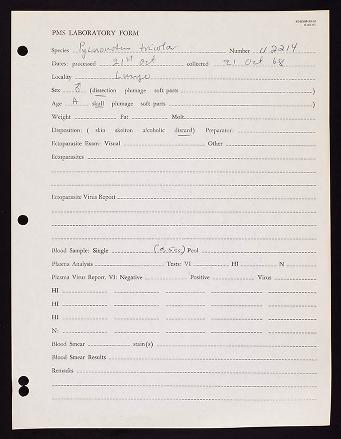 PMS LABORATORY FORM
Species Pycnonotus tricolor Number U 2214
Dates: processed 21st Oct collected 21 Oct 68
Locality
Sex ♂ (dissection plumage soft parts )
Age A skull plumage soft parts )
Weight Fat Molt
Disposition: ( skin skelton alcoholic discard) Preparator:
Ectoparasite Exam: Visual Other
Ectoparasites
Ectoparasite Virus Report
Blood Sample: Single Pool
Plasma Analysis Tests: VI HI N
Plasma Virus Report, VI: Negative Positive Virus
HI
HI
HI
N:
Blood Smear stain(s)
Blood Smear Results
Remarks